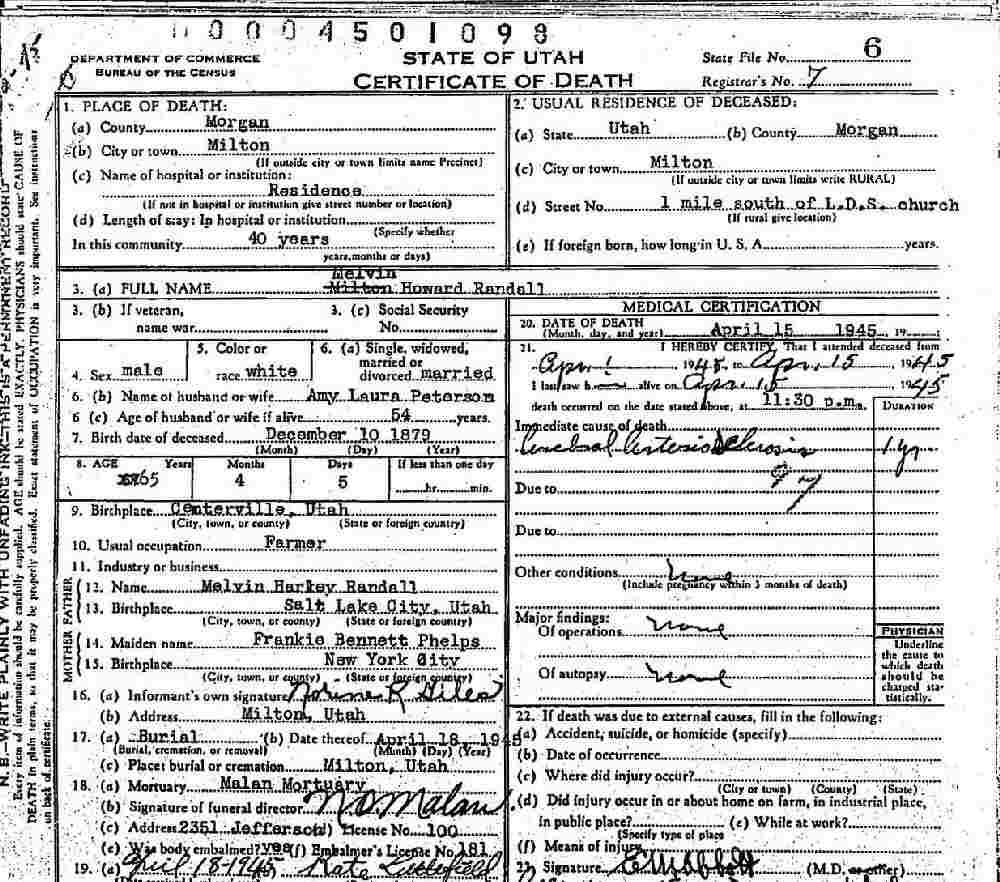 0004501098
DEPARTMENT OF COMMERCE
BUREAU OF THE CENSUS
STATE OF UTAH
CERTIFICATE OF DEATH
State File No. 6
Registrar's No. 7
N. B.—WRITE PLAINLY WITH UNFADING INK—THIS IS A PERMANENT RECORD
Every item of information should be carefully supplied. AGE should be stated EXACTLY. PHYSICIANS should state CAUSE OF
DEATH in plain terms, so that it may be properly classified. Exact statement of OCCUPATION is very important. See instructions
on back of certificate.
1. PLACE OF DEATH:
(a) County Morgan
(b) City or town Milton
(If outside city or town limits name Precinct)
(c) Name of hospital or institution:
Residence
(If not in hospital or institution give street number or location)
(d) Length of stay: In hospital or institution
(Specify whether
In this community 40 years
years, months or days)
2. USUAL RESIDENCE OF DECEASED:
(a) State Utah (b) County Morgan
(c) City or town Milton
(If outside city or town limits write RURAL)
(d) Street No. 1 mile south of L.D.S. church
(If rural give location)
(e) If foreign born, how long in U. S. A. years.
Melvin
3. (a) FULL NAME Milton Howard Randall
3. (b) If veteran,
name war
3. (c) Social Security
No.
4. Sex male
5. Color or
race white
6. (a) Single, widowed,
married or
divorced married
6. (b) Name of husband or wife Amy Laura Peterson
6 (c) Age of husband or wife if alive 54 years.
7. Birth date of deceased December 10 1879
(Month) (Day) (Year)
8. AGE Years Months Days If less than one day
65 4 5 hr. min.
9. Birthplace Centerville, Utah
(City, town, or county) (State or foreign country)
10. Usual occupation Farmer
11. Industry or business
FATHER
12. Name Melvin Harley Randall
13. Birthplace Salt Lake City, Utah
(City, town, or county) (State or foreign country)
MOTHER
14. Maiden name Frankie Bennett Phelps
15. Birthplace New York City
(City, town, or county) (State or foreign country)
16. (a) Informant's own signature Norine R Giles
(b) Address Milton, Utah
17. (a) Burial (b) Date thereof April 18, 1945
(Burial, cremation, or removal) (Month) (Day) (Year)
(c) Place: burial or cremation Milton, Utah
18. (a) Mortuary Malan Mortuary
(b) Signature of funeral director N O Malan
(c) Address 2351 Jefferson License No. 100
(e) Was body embalmed? yes (f) Embalmer's License No. 181
19. (a) April 18-1945 Kate Littlefield
MEDICAL CERTIFICATION
20. DATE OF DEATH
(Month, day, and year) April 15 1945, 19
21. I HEREBY CERTIFY, That I attended deceased from
Apr. 1 1945, to Apr. 15, 1945
I last saw h alive on Apr. 15 1945
death occurred on the date stated above, at 11:30 p.m.
DURATION
Immediate cause of death
Cerebral Arterio Sclerosis 1 yr
97
Due to
Due to
Other conditions none
(Include pregnancy within 3 months of death)
Major findings:
Of operations none
Of autopsy none
PHYSICIAN
Underline
the cause to
which death
should be
charged sta-
tistically.
22. If death was due to external causes, fill in the following:
(a) Accident, suicide, or homicide (specify)
(b) Date of occurrence
(c) Where did injury occur?
(City or town) (County) (State)
(d) Did injury occur in or about home on farm, in industrial place,
in public place? (e) While at work?
(Specify type of place
(f) Means of injury
23. Signature (M.D. or other)